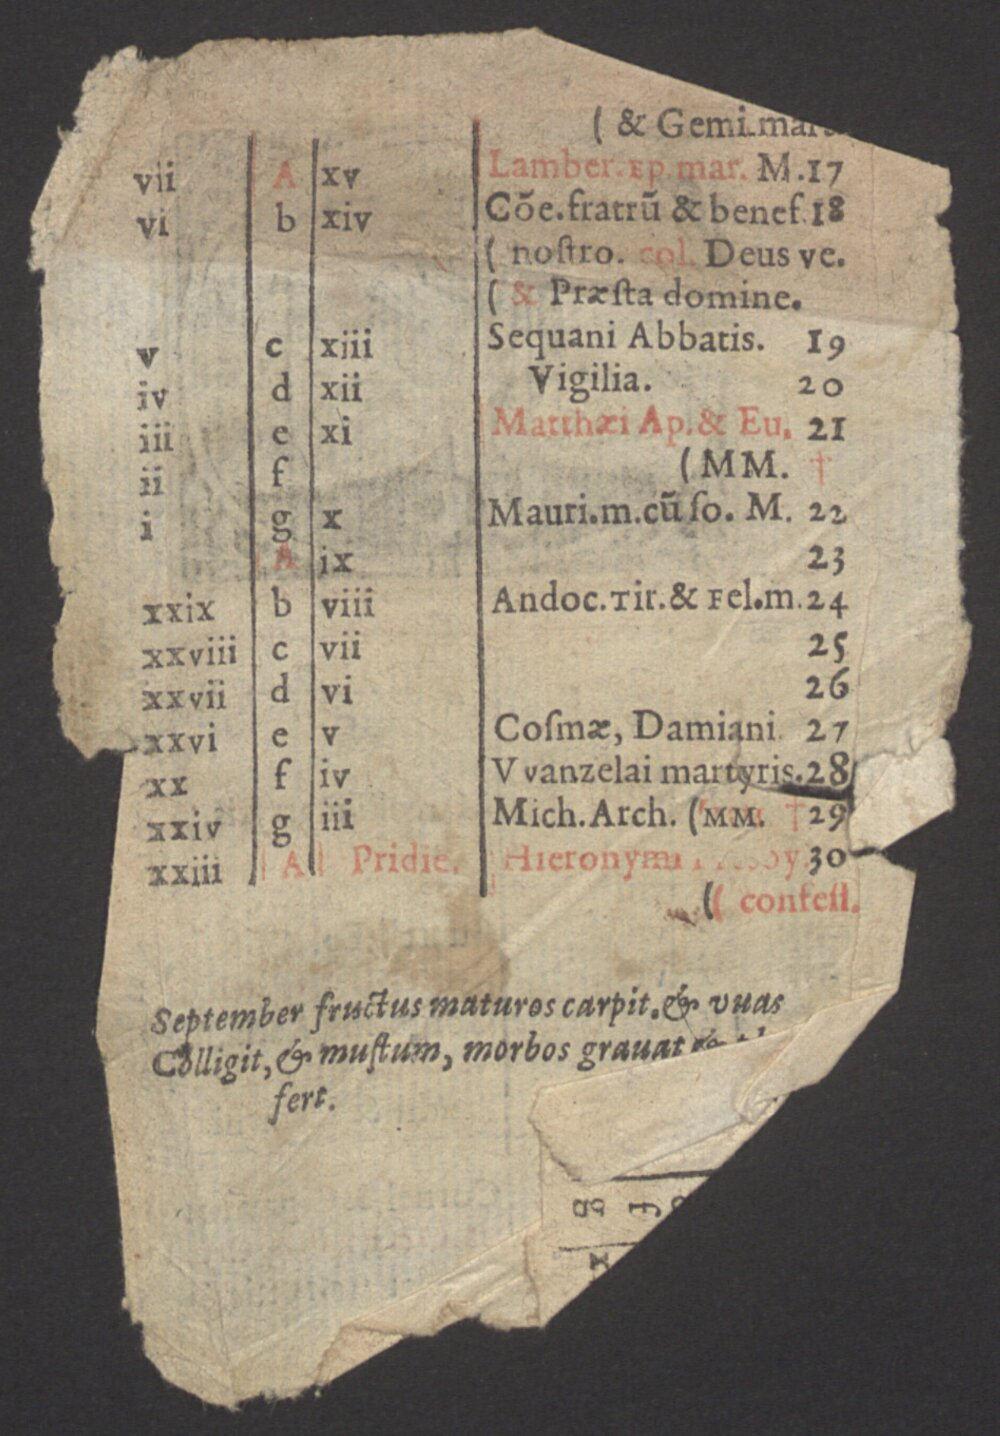 ( & Gemi.mart.
vii A xv Lamber.ep.mar. M.17
vi b xiv Cõe.fratrũ & benef.18
( noſtro. col. Deus ve.
( & Præſta domine.
v c xiii Sequani Abbatis. 19
iv d xii Vigilia. 20
iii e xi Matthæi Ap.& Eu. 21
ii f (MM. †
i g x Mauri.m.cũ ſo. M. 22
A ix 23
xxix b viii Andoc.Tir.& Fel.m.24
xxviii c vii 25
xxvii d vi 26
xxvi e v Coſmæ, Damiani. 27
xx f iv VVanzelai martyris.28
xxiv g iii Mich.Arch. (MM. † 29
xxiii A Pridie. Hieronymi 30
(( confeſſ.
September fructus maturos carpit.& vuas
Colligit, & muſtum, morbos grauat
fert.
g f
x